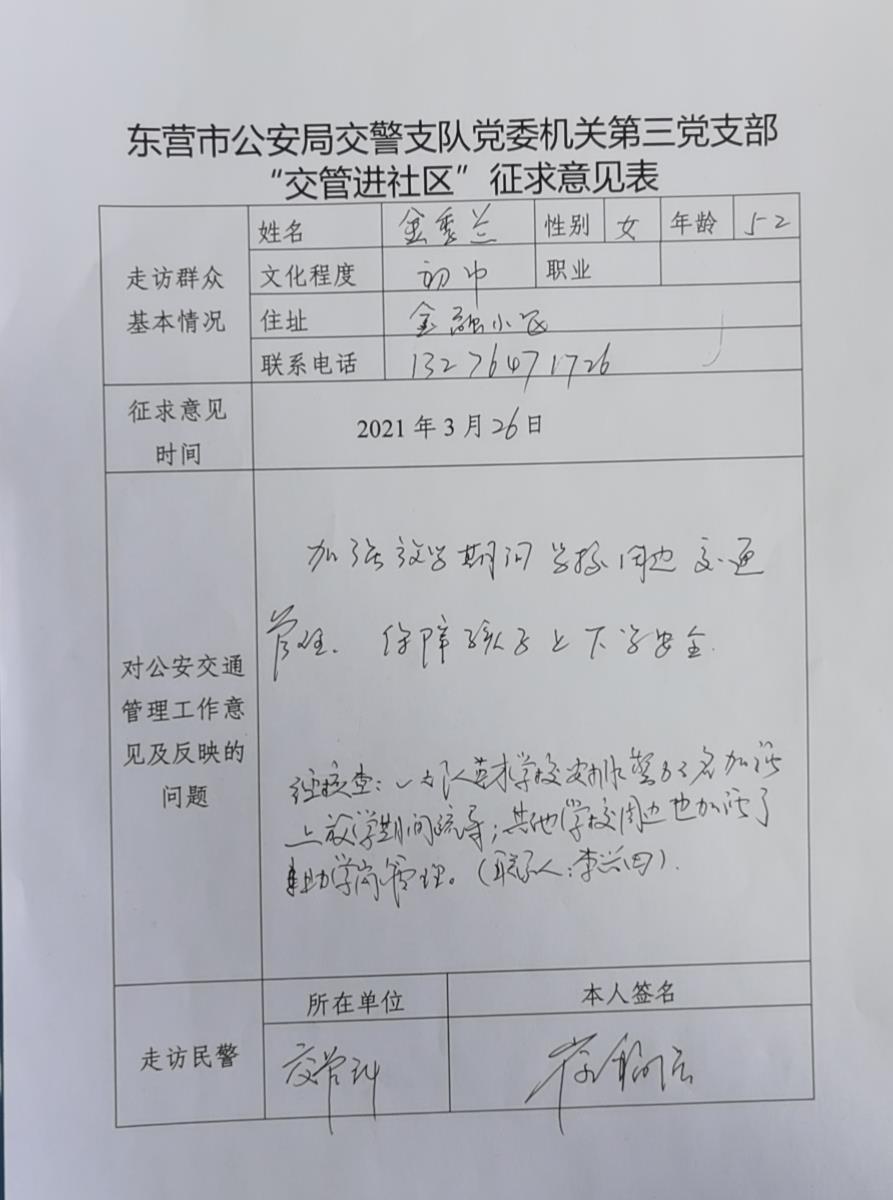 东营市公安局交警支队党委机关第三党支部
“交管进社区”征求意见表
走访群众
基本情况
姓名 金秀兰 性别 女 年龄 52
文化程度 初中 职业
住址 金融小区
联系电话 13276471726
征求意见
时间
2021 年 3 月 26 日
对公安交通
管理工作意
见及反映的
问题
加强放学期间学校周边交通
管理. 保障孩子上下学安全.
经核查：一大队英才学校安排警力2名加强
上放学期间疏导；其他学校周边也加强了
助学岗管理。（联系人：李兴田）.
走访民警
所在单位 本人签名
交管科